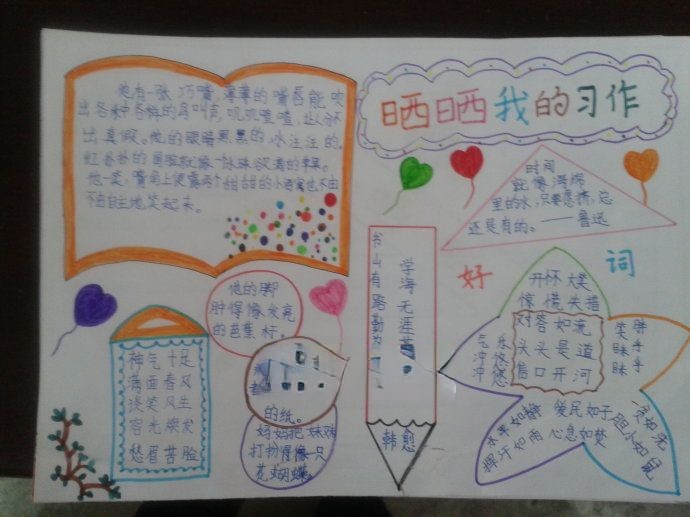 晒晒我的习作
他有一张巧嘴,薄薄的嘴唇能吹
出各种各样的鸟叫声,叽叽喳喳,让人分不
出真假。他的眼睛黑黑的,水汪汪的。
红扑扑的圆脸就像一张张没满的苹果。
他一笑,嘴角上便露两个甜甜的小酒窝也不由
不由自主地笑起来。
时间
就像海绵
里的水,只要愿挤,总
还是有的。——鲁迅
好词
开怀大笑
惊慌失措
对答如流
头头是道
信口开河
气冲冲
乐悠悠
笑眯眯
胖乎乎
水平如镜
挥汗如雨
爱民如子
心急如焚
胆小如鼠
一贫如洗
书山有路勤为
学海无涯苦
韩愈
他的脚
肿得像发亮
的芭蕉杆。
的纸。
妈妈把妹妹
打扮得像一只
花蝴蝶。
神气十足
满面春风
谈笑风生
容光焕发
愁眉苦脸